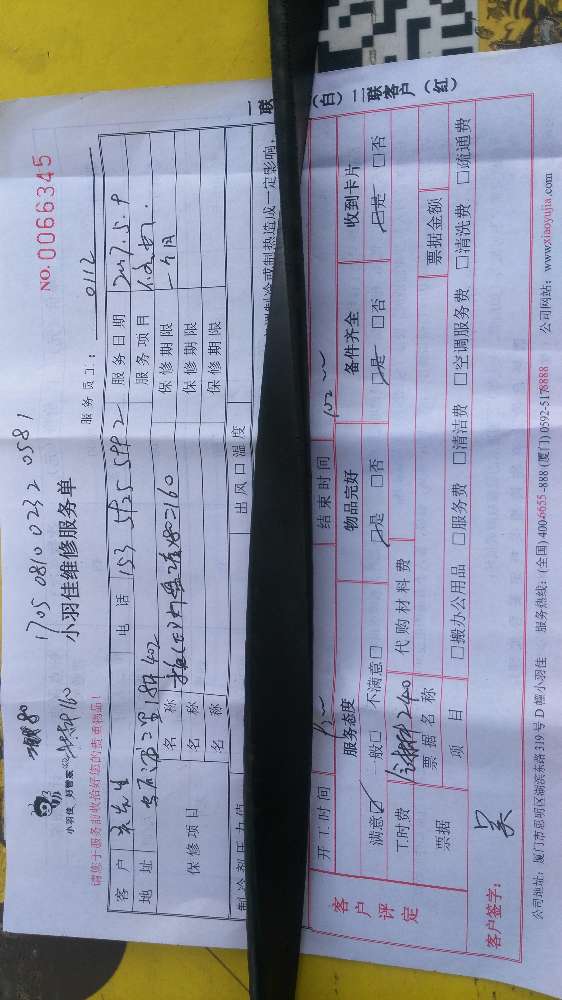 NO.0066345
1705 0810 0232 0581
小羽佳 好管家
小羽佳维修服务单
服务员工: 0112
请您于服务前收拾好您的贵重物品!
客户 吴先生 电话 153 5925 5992 服务日期 2017.5.9
地址 402 服务项目
保修项目 名称 保修期限 一个月
名称 保修期限
名称 保修期限
制冷剂压力值 出风口温度
制冷或制热造成一定影响,
一联 (白) 二联客户 (红)
开工时间 结束时间
客户评定 服务态度 物品完好 备件齐全 收到卡片
满意☑ 一般□ 不满意□ ☑是 □否 ☑是 □否 ☑是 □否
工时费 代购材料费
票据名称 票据金额
票据 项目 □搬办公用品 □服务费 □清洁费 □空调服务费 □清洗费 □疏通费
客户签字: 吴
公司地址: 厦门市思明区湖滨东路319号D幢小羽佳 服务热线: (全国) 4006655-888 (厦门) 0592-5178888 公司网站: www.xiaoyujia.com